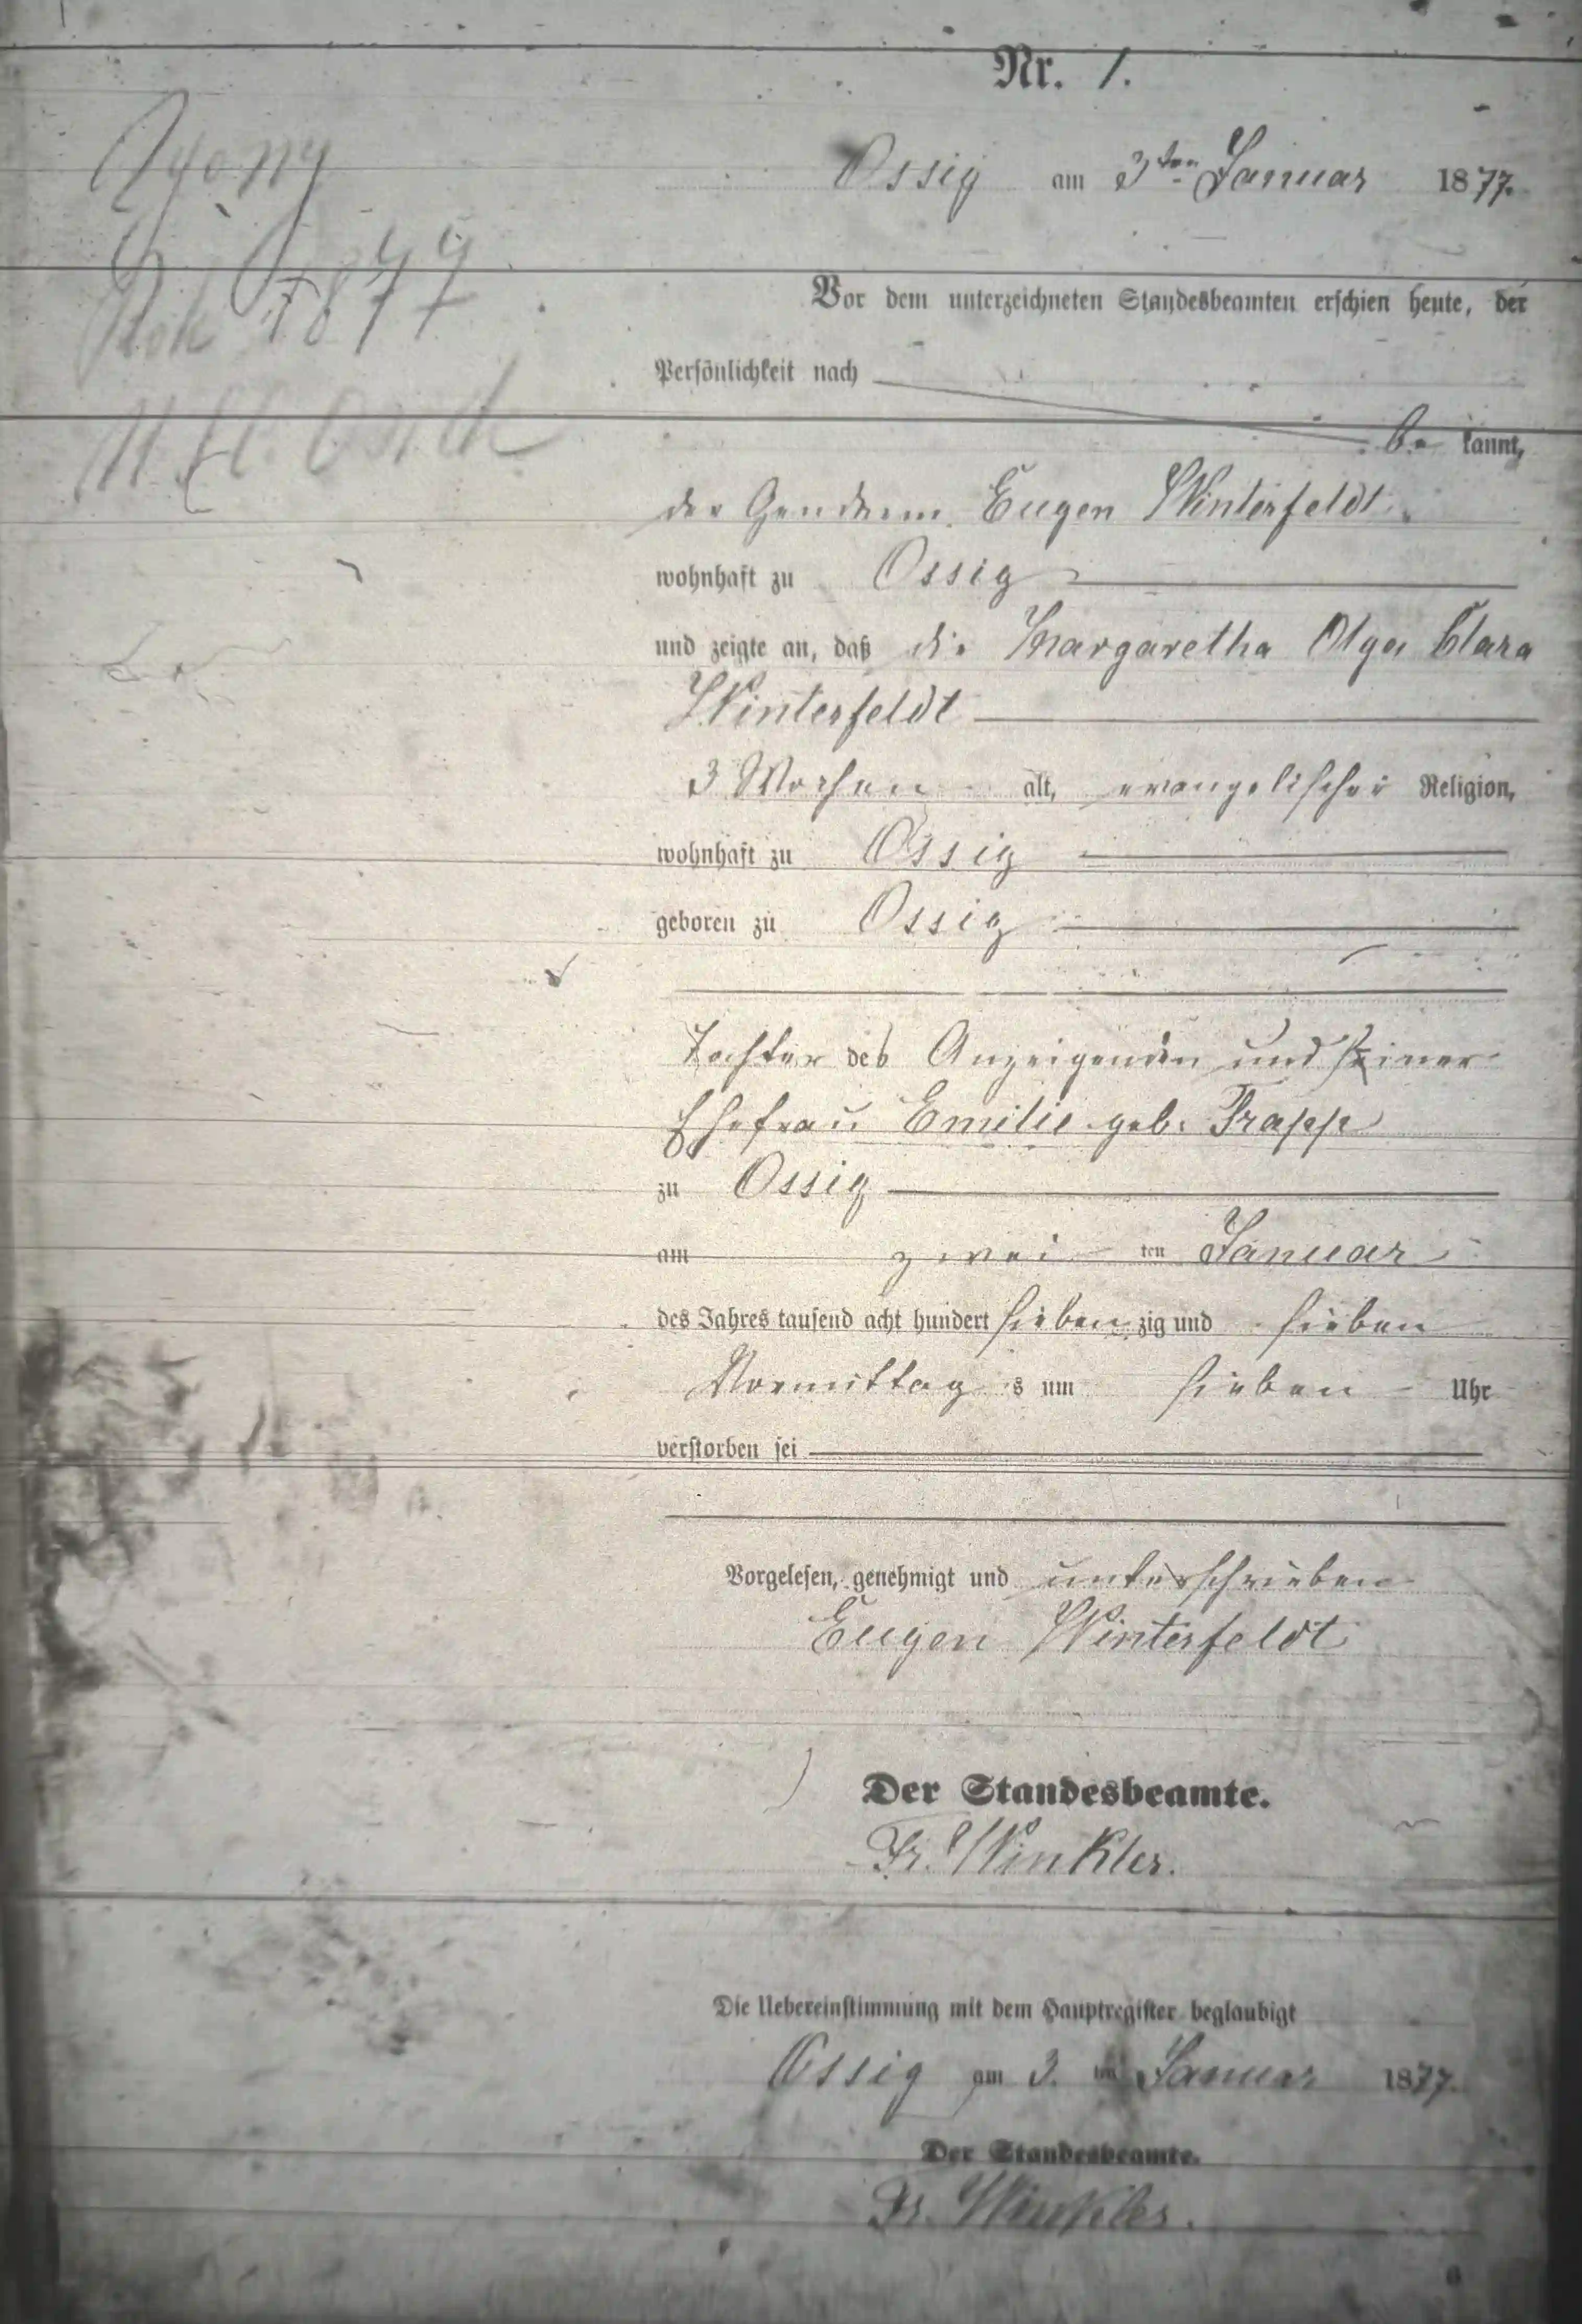 Nr. 1.
Ossig am 3ten Januar 1877.
Zgony
Rok 1877
Vor dem unterzeichneten Standesbeamten erschien heute, der
Persönlichkeit nach
be kannt,
der Gendarm Eugen Winterfeldt
wohnhaft zu Ossig
und zeigte an, daß die Margaretha Olga Clara
Winterfeldt
3 Wochen alt, evangelischer Religion,
wohnhaft zu Ossig
geboren zu Ossig
Tochter des Anzeigenden und seiner
Ehefrau Emilie geb. Trapp
zu Ossig
am zwei ten Januar
des Jahres tausend acht hundert sieben zig und sieben
Vormittag s um sieben Uhr
verstorben sei
Vorgelesen, genehmigt und unterschrieben
Eugen Winterfeldt
Der Standesbeamte.
Fr. Winkler.
Die Uebereinstimmung mit dem Hauptregister beglaubigt
Ossig am 3. ten Januar 1877.
Der Standesbeamte.
Fr. Winkler.